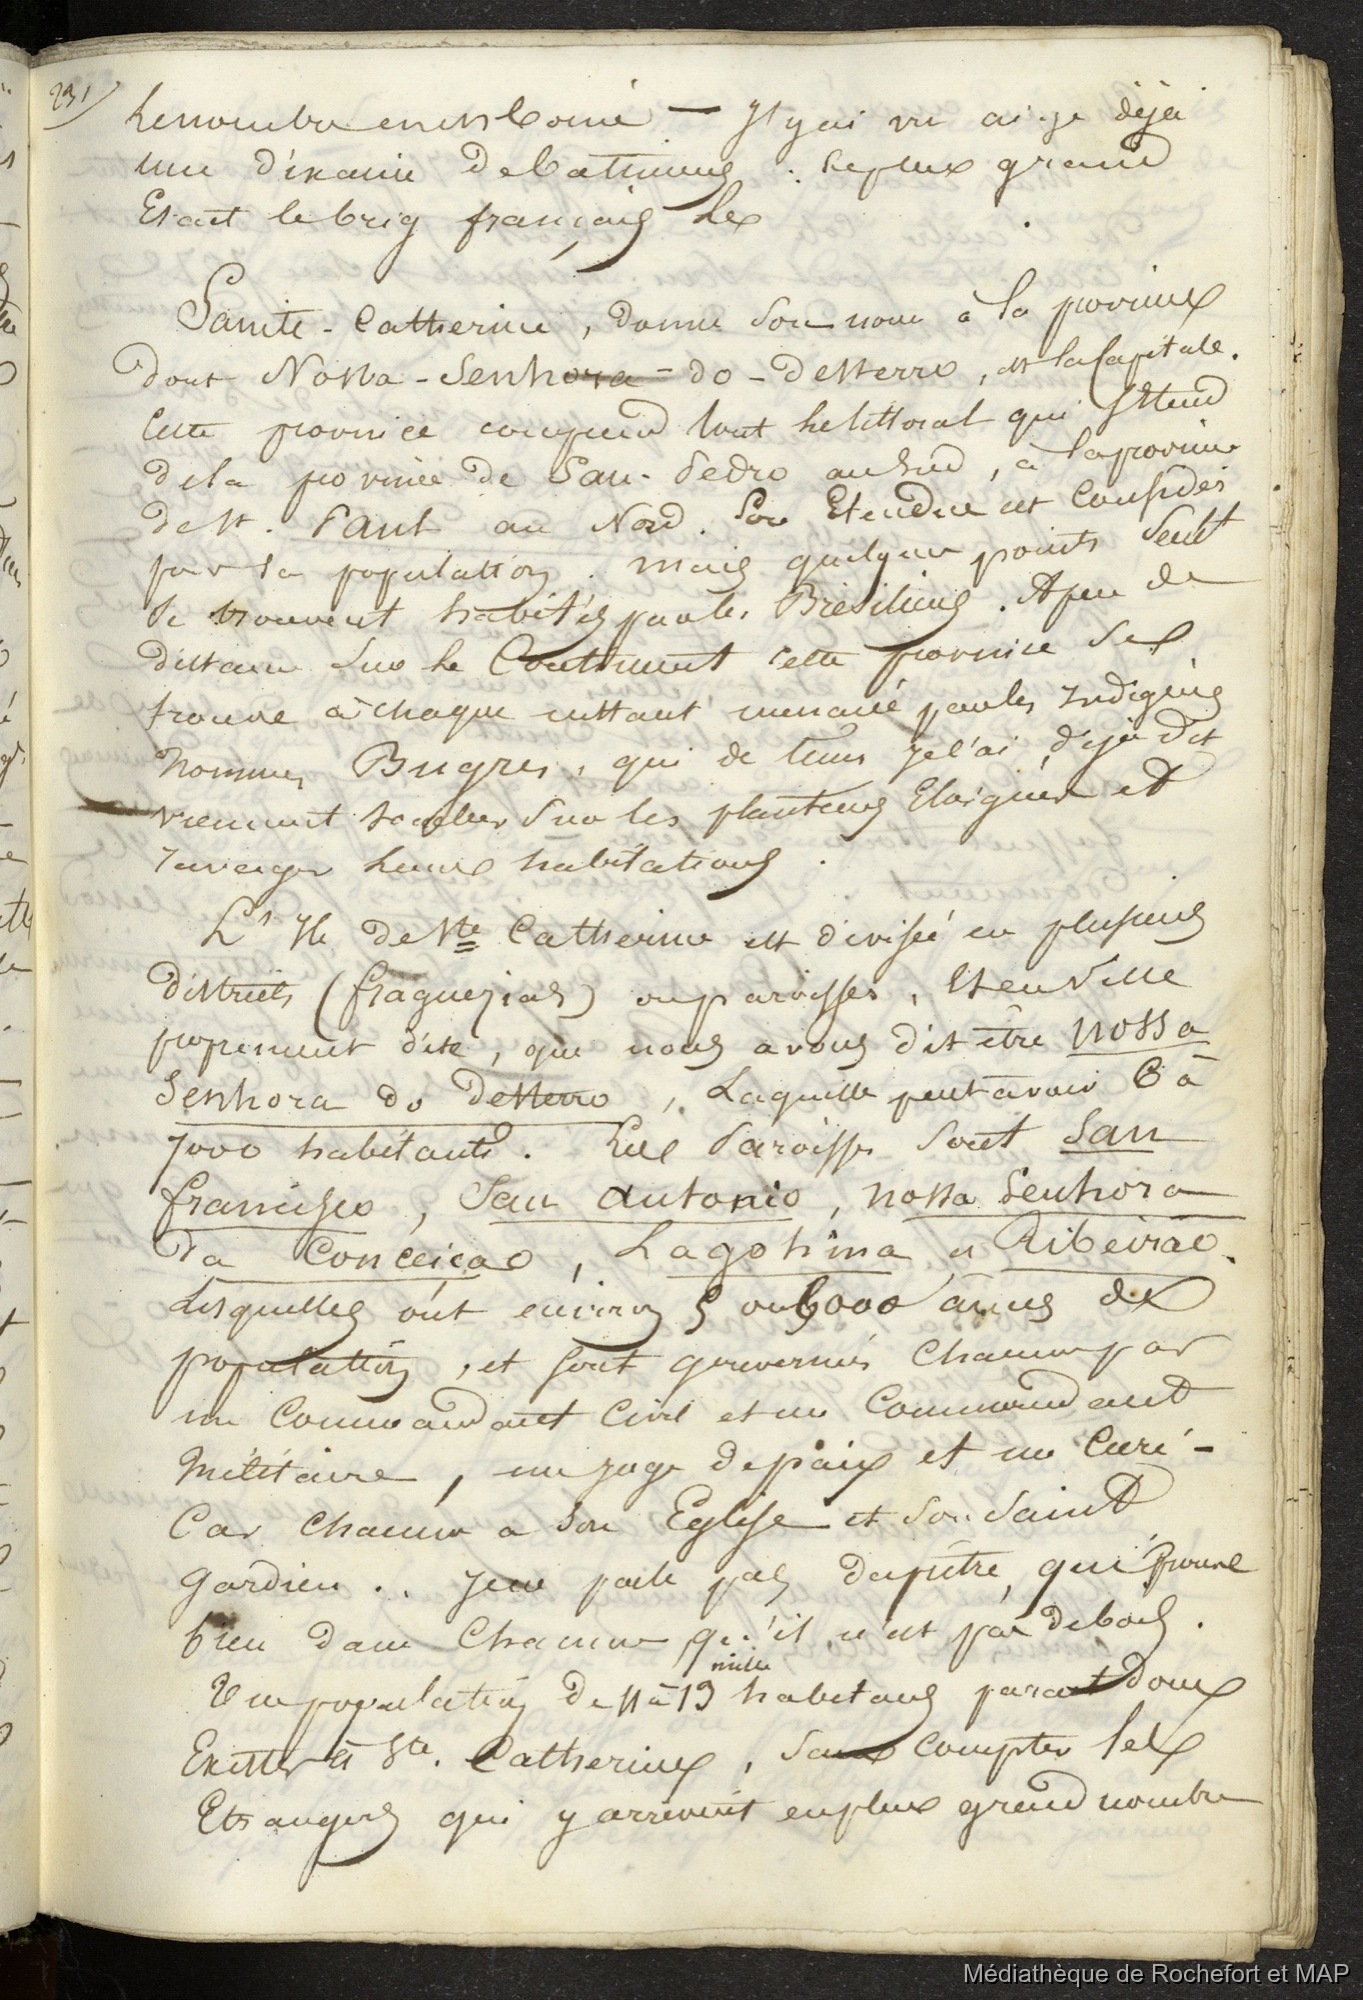 231
Le nombre en est borné — J'y ai vu ai-je déjà
une dixaine de batimens. Le plus grand
Etait le brig français Le
Sainte-Catherine, donne son nom à la province
dont Nossa-Senhora-do-Desterro, est la Capitale.
Cette province comprend tout le littoral qui s'étend
de la province de San-Pedro au Sud, à la province
de St. Paul au Nord. Son Etendue est Considér
par sa population. mais quelques points seult
se trouvent habités par les Brésiliens. A peu de
distance sur le Continent cette province se
trouve à chaque instant menacé par les Indigènes
nommés Bugres, qui de tems je l'ai déjà dit
viennent tomber sur les planteurs Eloignés et
ravager leurs habitations.
L' Ile de Ste Catherine est divisée en plusieurs
districts (fraguezias) ou paroisses, et en Ville
proprement dite, que nous avons dit être Nossa
Senhora do Desterro, Laquelle peut avoir 6 à
7000 habitants. Les Paroisses sont San
francisco, San Antonio, Nossa Senhora
da Conceicao, Lagohina et Ribeirao.
Lesquelles ont environ 5 ou 6000 âmes de
population, et sont gouvernés chacune par
un Commandant Civil et un Commandant
Militaire, un juge de paix et un Curé -
Car chacune a son Eglise et son Saint
Gardien .. Je ne parle pas du prêtre, qui prouve
bien dans chacune qu'il n'est pas de bois.
Une population de 11 à 13 mille habitans parait donc
Exister à Ste. Catherine, sans compter les
Etrangers qui y arrivent en plus grand nombre
Médiathèque de Rochefort et MAP